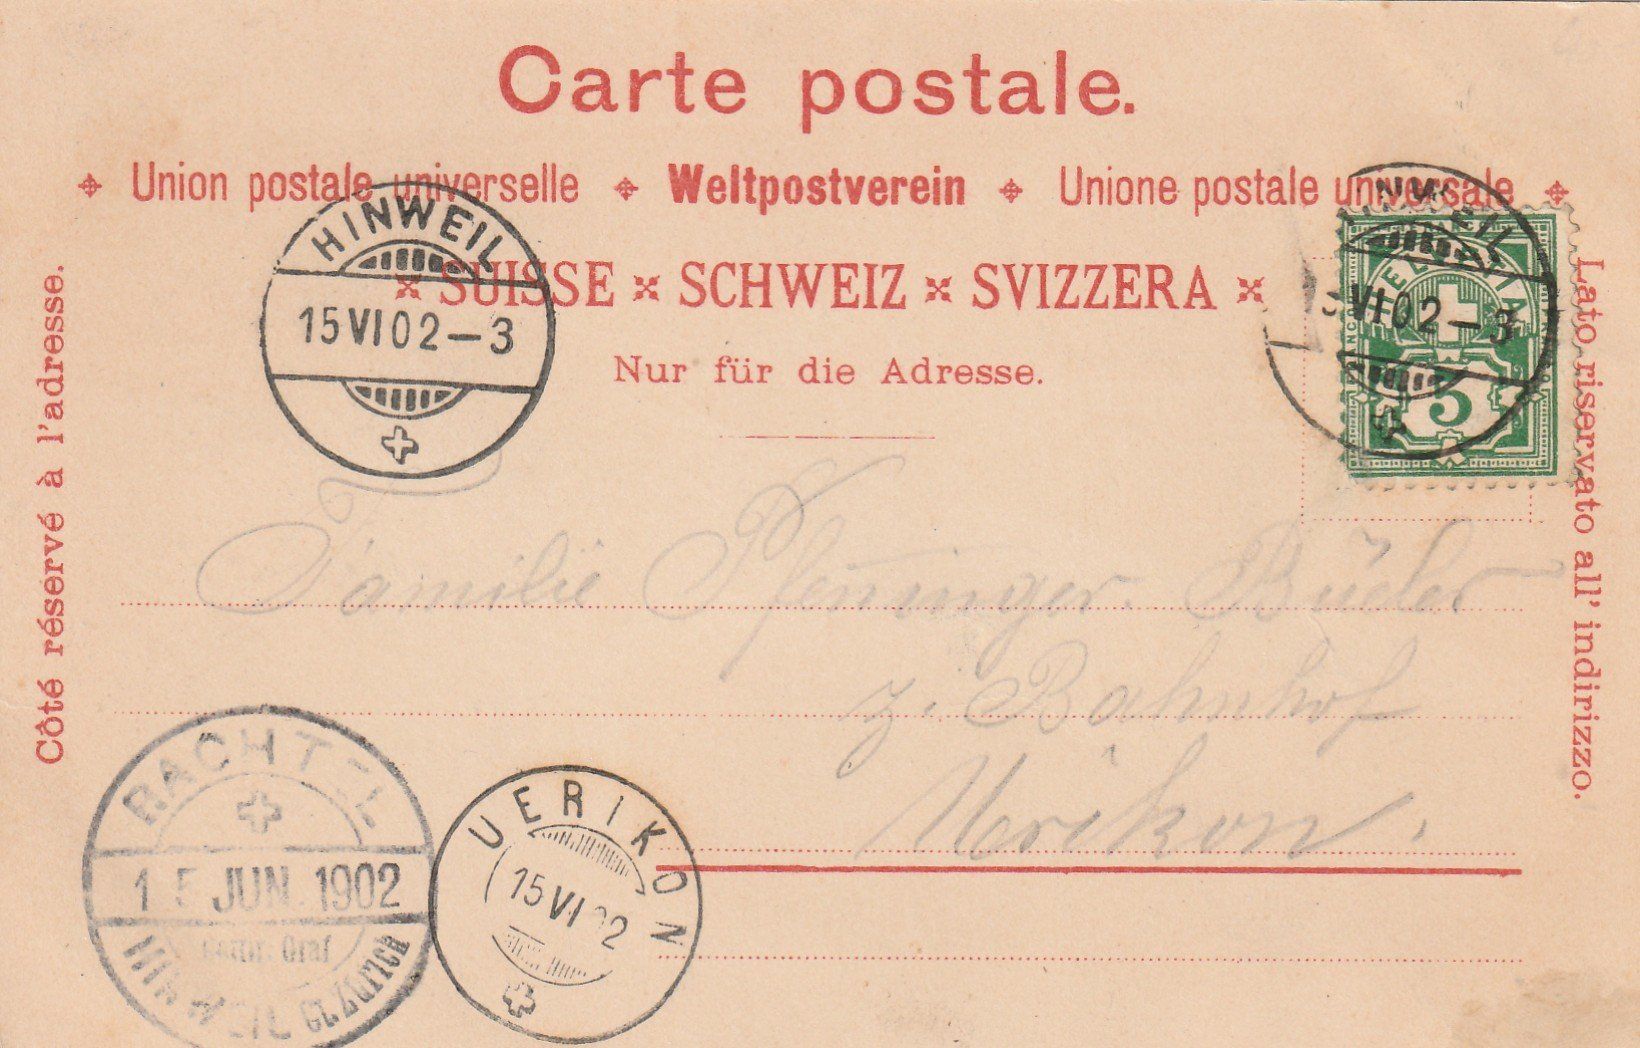 Carte postale.
Union postale universelle Weltpostverein Unione postale universale
SUISSE SCHWEIZ SVIZZERA
Nur für die Adresse.
Côté réservé à l'adresse.
Lato riservato all' indirizzo.
HINWEIL
15 VI 02 – 3
VI 02 – 3
5
Familie Pfenninger. Büeler
z. Bahnhof
Uerikon.
BACHTEL
15 JUN. 1902
Graf
HINWEIL Ct. Zürich
UERIKON
15 VI 02